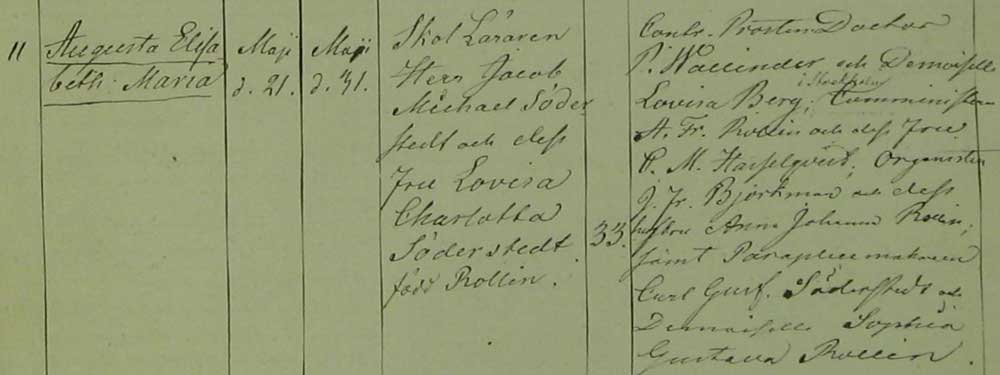 11
Augusta Elisa
beth Maria
Maji
d. 21.
Maji
d. 31.
Skol Läraren
Herr Jacob
Michael Söder
stedt och dess
Fru Lovisa
Charlotta
Söderstedt
född Rollin.
33.
Contr. Prosten Doctor
P. Wallinder och Demoiselle
i Stockholm
Lovisa Berg; Comministern
A. Fr. Rollin och dess Fru
C. M. Hasselqvist; Organisten
J. Fr. Björkman och dess
hustru Anna Johanna Rollin;
samt Parapliemakaren
Carl Gust. Söderstedt och
Demoiselle Sophia
Gustava Rollin.